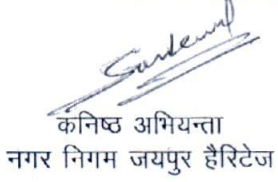 कनिष्ठ अभियन्ता
नगर निगम जयपुर हैरिटेज